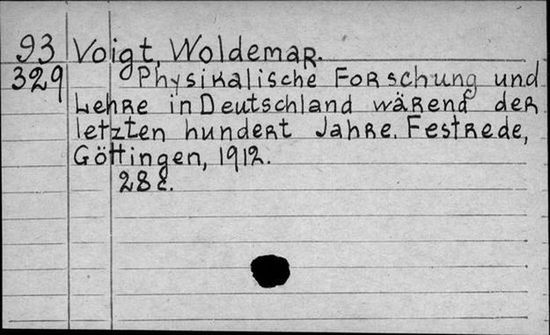 93 Voigt, Woldemar.
329 Physikalische Forschung und
Lehre in Deutschland wärend der
letzten hundert Jahre. Festrede,
Göttingen, 1912.
28 c.